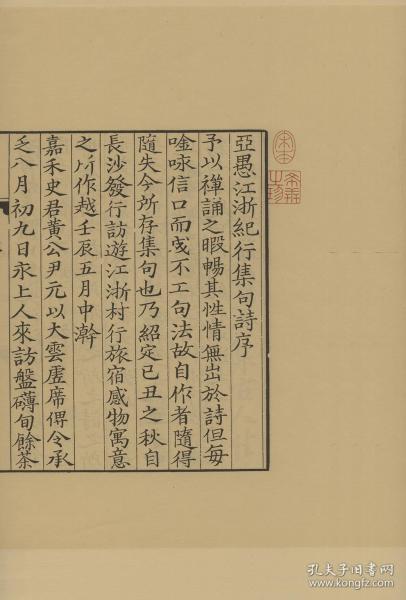 亞愚江浙紀行集句詩序
予以禪誦之暇暢其性情無出於詩但每
唫咏信口而成不工句法故自作者隨得
隨失今所存集句也乃紹定己丑之秋自
長沙發行訪遊江浙村行旅宿感物寓意
之所作越壬辰五月中澣
嘉禾史君黃公尹元以大雲虛席俾令承
乏八月初九日永上人來訪盤礴旬餘茶
孔夫子旧书网